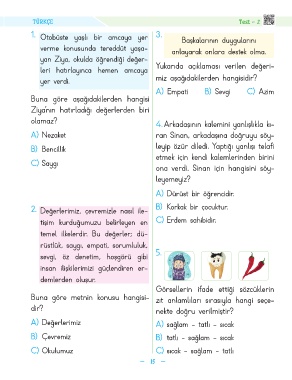 TÜRKÇE
Test - 2
1. Otobüste yaşlı bir amcaya yer
verme konusunda tereddüt yaşa-
yan Ziya, okulda öğrendiği değer-
leri hatırlayınca hemen amcaya
yer verdi.
Buna göre aşağıdakilerden hangisi
Ziya'nın hatırladığı değerlerden biri
olamaz?
A) Nezaket
B) Bencillik
C) Saygı
2. Değerlerimiz, çevremizle nasıl ile-
tişim kurduğumuzu belirleyen en
temel ilkelerdir. Bu değerler; dü-
rüstlük, saygı, empati, sorumluluk,
sevgi, öz denetim, hoşgörü gibi
insan ilişkilerimizi güçlendiren er-
demlerden oluşur.
Buna göre metnin konusu hangisi-
dir?
A) Değerlerimiz
B) Çevremiz
C) Okulumuz
3. Başkalarının duygularını
anlayarak onlara destek olma.
Yukarıda açıklaması verilen değeri-
miz aşağıdakilerden hangisidir?
A) Empati B) Sevgi C) Azim
4. Arkadaşının kalemini yanlışlıkla kı-
ran Sinan, arkadaşına doğruyu söy-
leyip özür diledi. Yaptığı yanlışı telafi
etmek için kendi kalemlerinden birini
ona verdi. Sinan için hangisini söy-
leyemeyiz?
A) Dürüst bir öğrencidir.
B) Korkak bir çocuktur.
C) Erdem sahibidir.
5.
Görsellerin ifade ettiği sözcüklerin
zıt anlamlıları sırasıyla hangi seçe-
nekte doğru verilmiştir?
A) sağlam - tatlı - sıcak
B) tatlı - sağlam - sıcak
C) sıcak - sağlam - tatlı
- 15 -